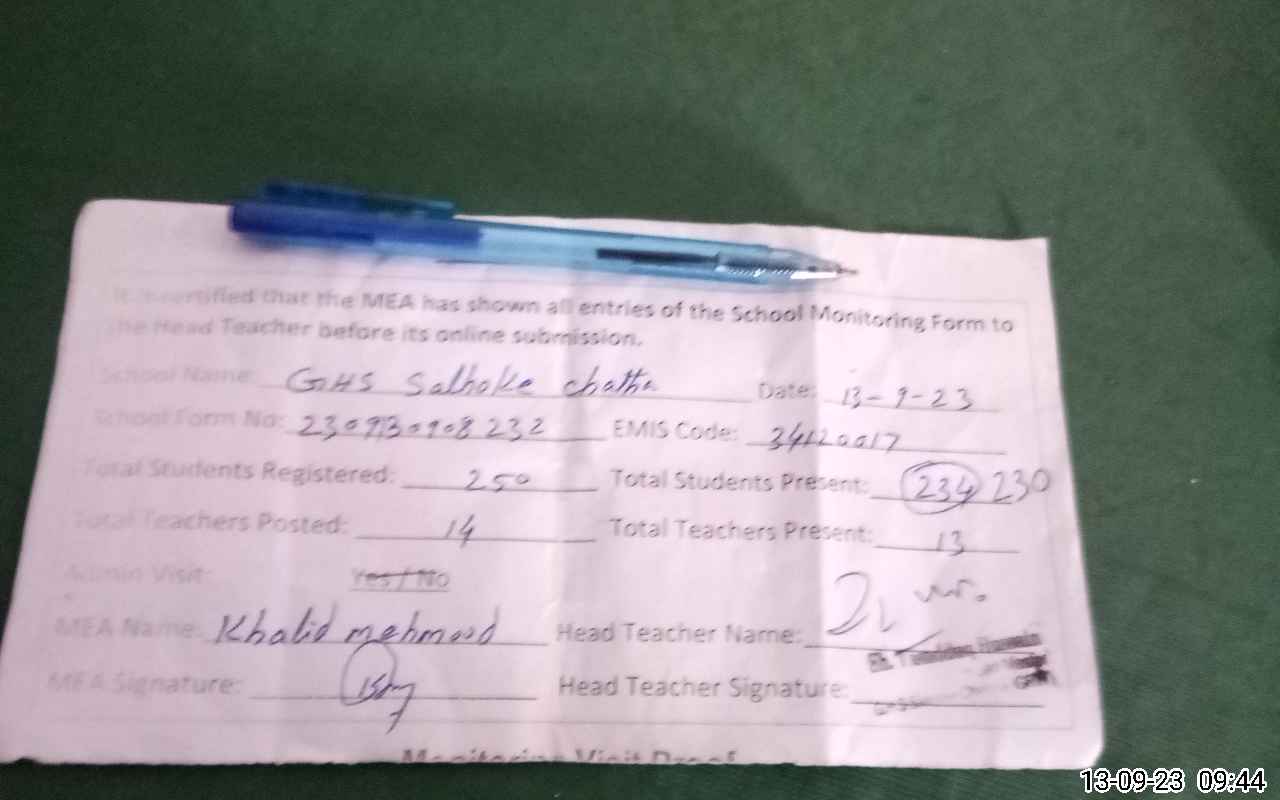 It is certified that the MEA has shown all entries of the School Monitoring Form to
the Head Teacher before its online submission.
School Name: GHS Salhoke Chatha Date: 13-9-23
School Form No: 2309130908232 EMIS Code: 34120017
Total Students Registered: 250 Total Students Present: 234 230
Total Teachers Posted: 14 Total Teachers Present: 13
Admin Visit: Yes / No
MEA Name: Khalid mehmood Head Teacher Name:
MEA Signature: Head Teacher Signature:
Monitoring Visit Proof
13-09-23 09:44